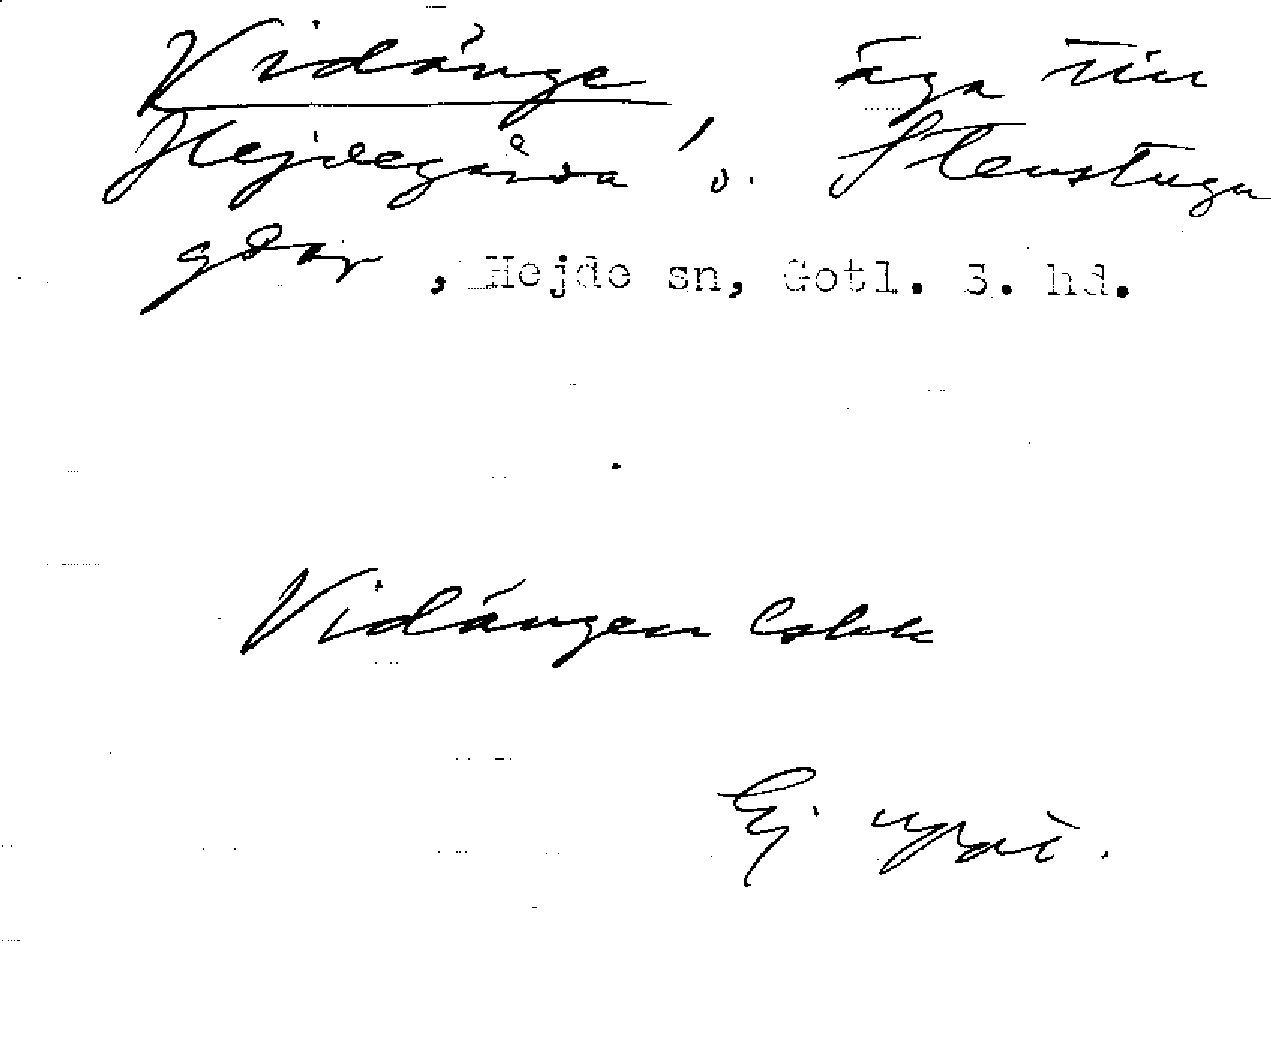 Vidänge, äga till
Hejdegårda o. Stenstuga
gdar, Hejde sn, Gotl. 3. hd.
Vidängen Cskk
Ej uppt.